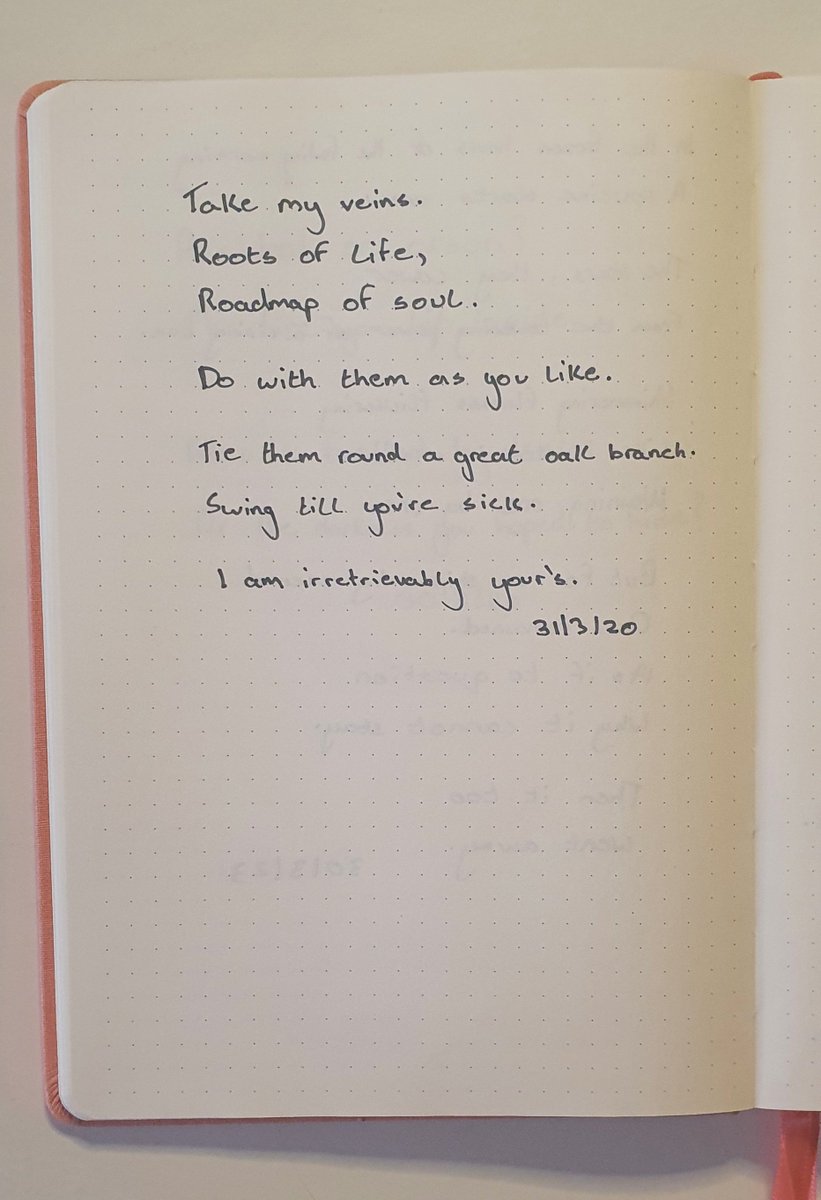 Take my veins.
Roots of Life,
Roadmap of soul.
Do with them as you like.
Tie them round a great oak branch.
Swing till you're sick.
I am irretrievably your's.
31/3/20